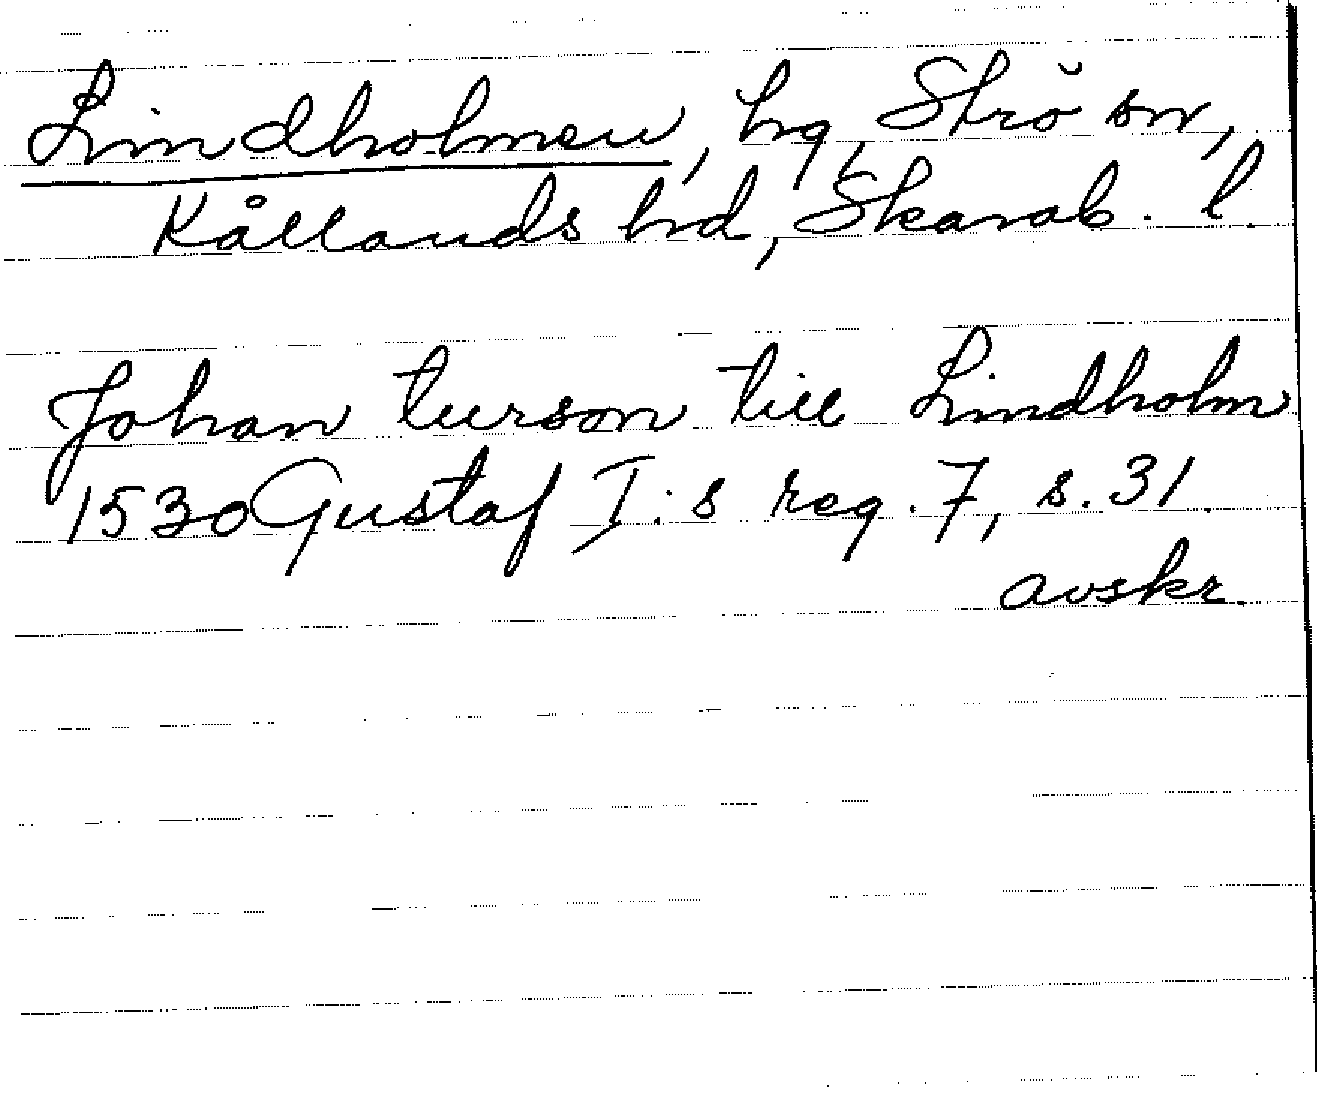 Lindholmen, hg, Strö sn,
Kållands hd, Skarab. l.
Johan turson till Lindholm
1530 Gustaf I:s reg. 7, s. 31.
avskr.